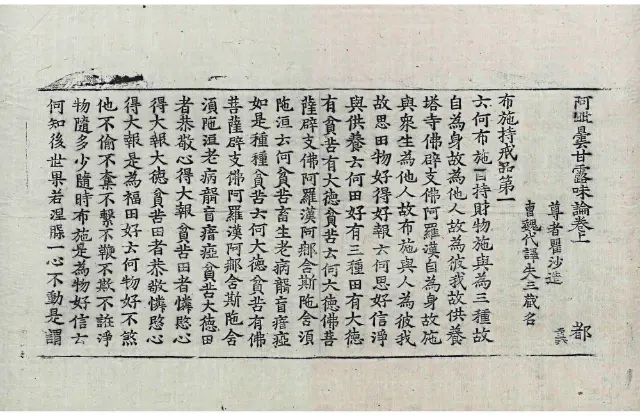 阿毗曇甘露味論卷上 都
尊者瞿沙造
曹魏代譯失三藏名
布施持戒品第一
云何布施曰持財物施與為三種故
自為身故為他人故為彼我故供養
塔寺佛辟支佛阿羅漢自為身故施
與衆生為他人故布施與人為彼我
故思田物好得好報云何思好信淨
與供養云何田好有三種田有大德
有貧苦有大德貧苦云何大德佛菩
薩辟支佛阿羅漢阿那含斯陁含須
陁洹云何貧苦畜生老病聾盲瘖瘂
如是種種貧苦云何大德貧苦有佛
菩薩辟支佛阿羅漢阿那含斯陁含
須陁洹老病聾盲瘖瘂貧苦大德田
者恭敬心得大報貧苦田者憐愍心
得大報大德貧苦田者恭敬憐愍心
得大報是為福田好云何物好不煞
他不偷不奪不擊不鞭不欺不誑淨
物隨多少隨時布施是為物好信云
何知後世果若涅槃一心不動是謂